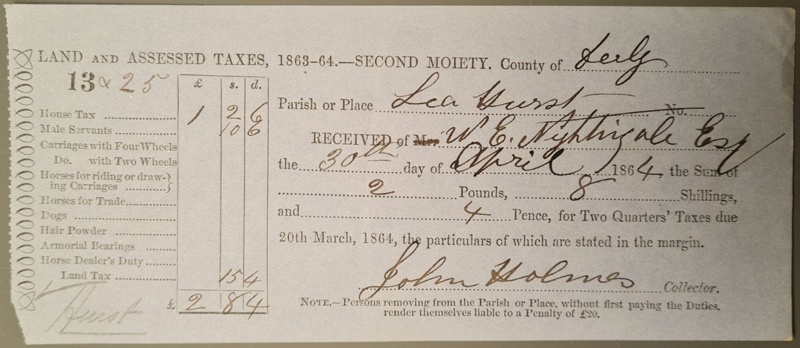 LAND AND ASSESSED TAXES, 1863-64.—SECOND MOIETY. County of Derby
13 & 25
£ s. d.
House Tax 1 2 6
Male Servants 10 6
Carriages with Four Wheels
Do. with Two Wheels
Horses for riding or draw-
ing Carriages
Horses for Trade
Dogs
Hair Powder
Armorial Bearings
Horse Dealer's Duty
Land Tax 15 4
£ 2 8 4
Hurst
Parish or Place Lea Hurst No.
RECEIVED of Mr. W. E. Nightingale Esq
the 30th day of April 1864 the Sum of
2 Pounds, 8 Shillings,
and 4 Pence, for Two Quarters' Taxes due
20th March, 1864, the particulars of which are stated in the margin.
John Holmes Collector.
NOTE.—Persons removing from the Parish or Place, without first paying the Duties,
render themselves liable to a Penalty of £20.